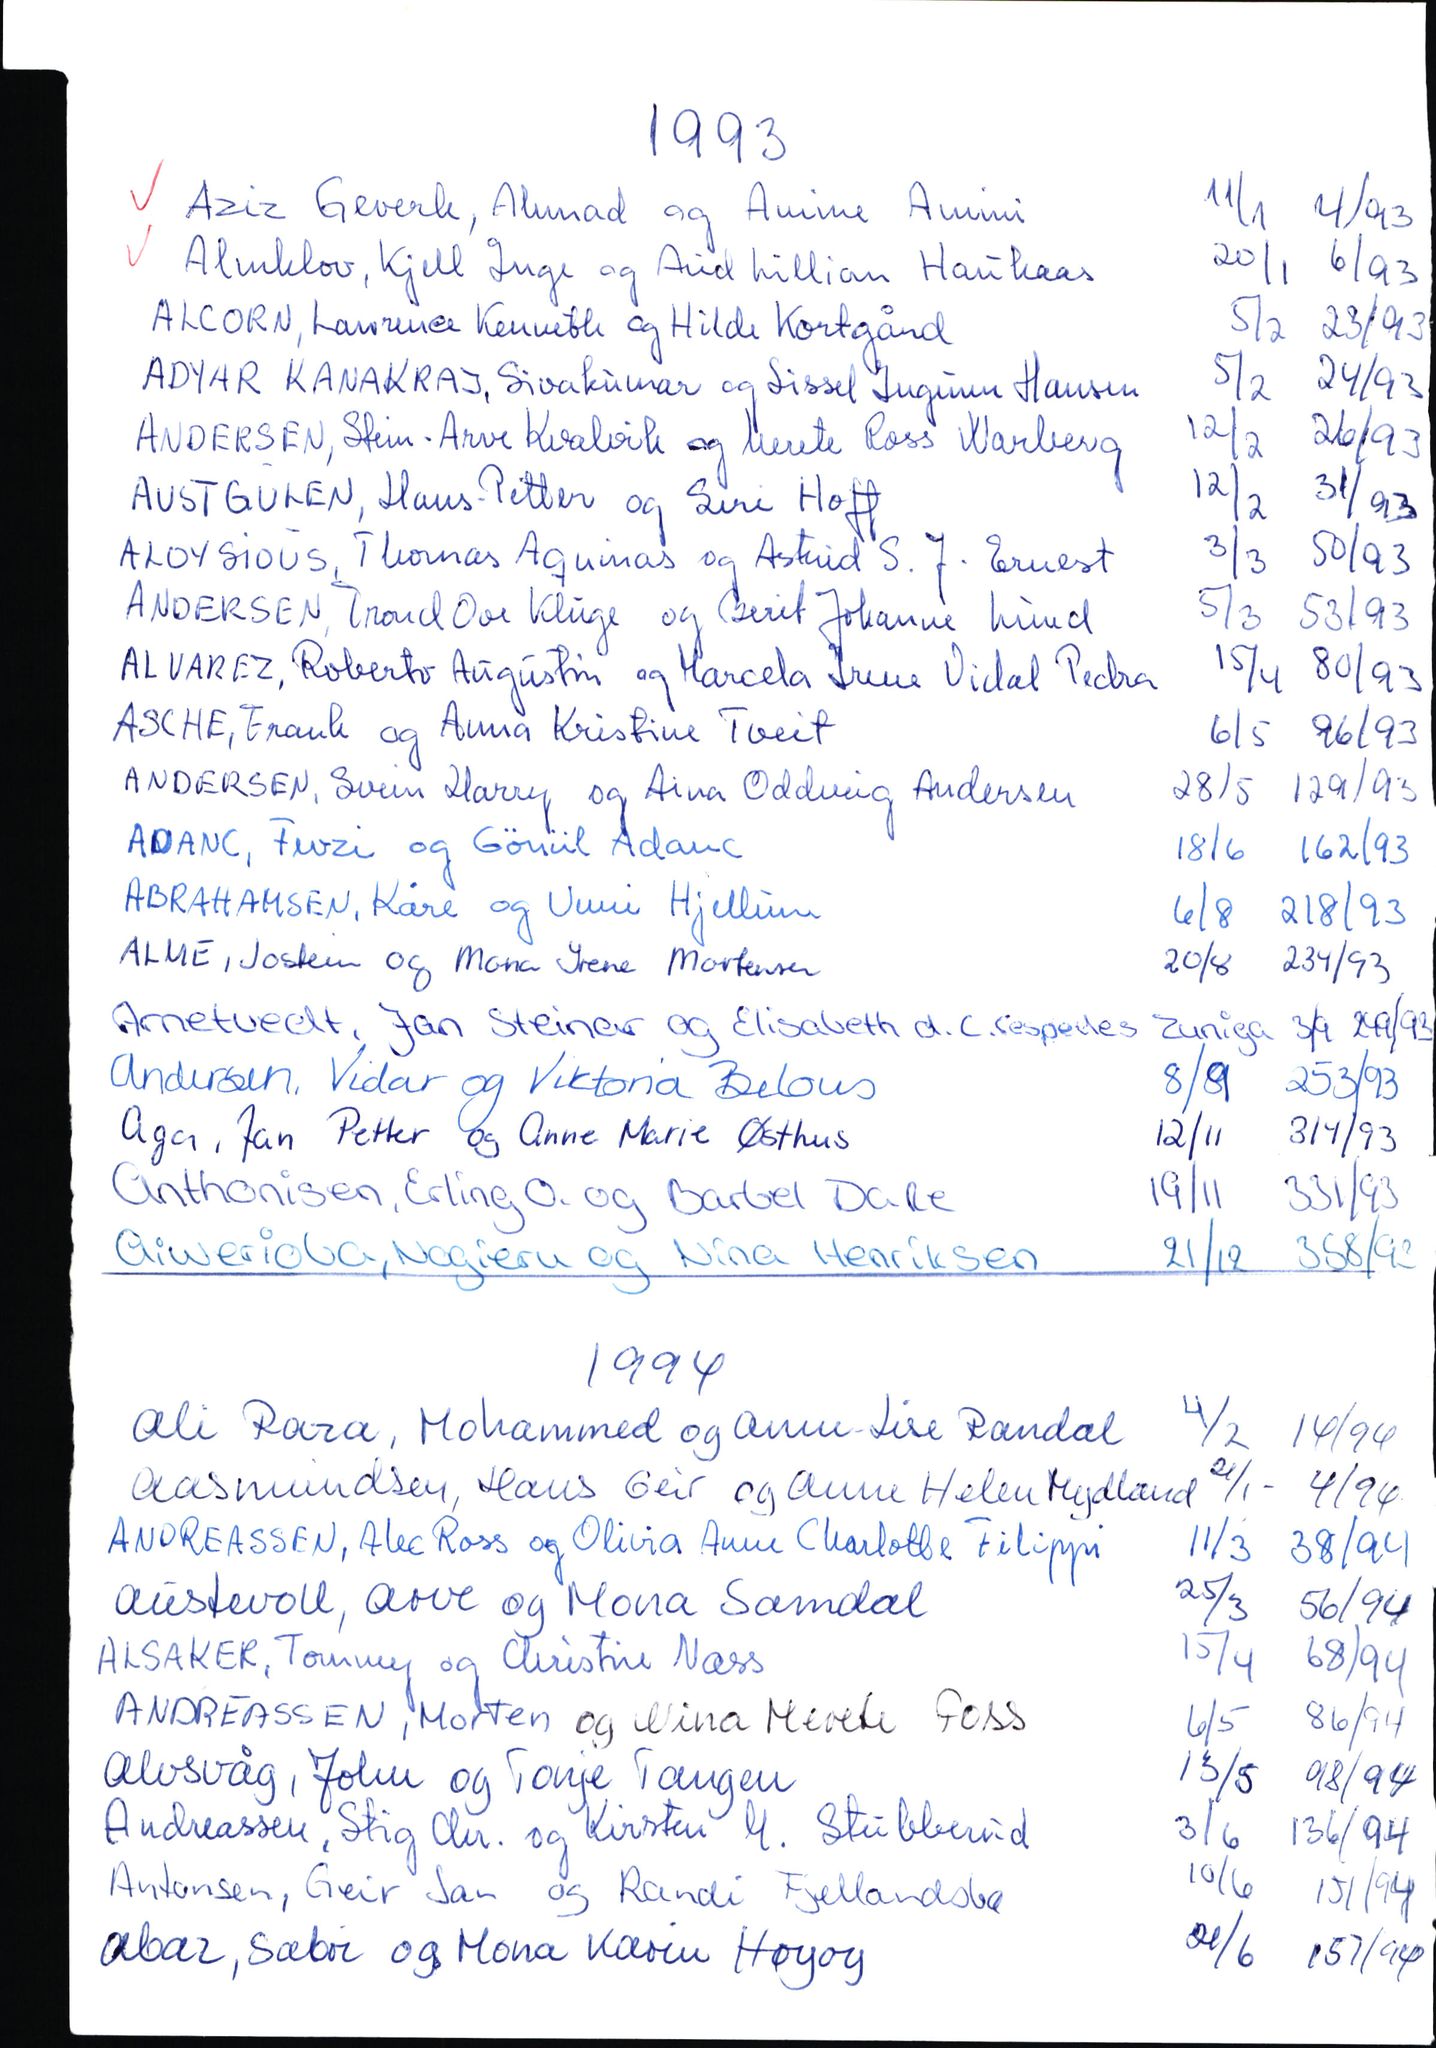 1993
Aziz Geverk, Ahmad og Amine Amini 11/1 4/93
Almklov, Kjell Inge og Aud Lillian Haukaas 20/1 6/93
ALCORN, Lawrence Kenneth og Hilde Kortgård 5/2 23/93
ADYAR KANAKRAJ, Sivakumar og Sissel Ingunn Hansen 5/2 24/93
ANDERSEN, Stein-Arve Kvalvik og Merete Ross Warberg 12/2 26/93
AUSTGULEN, Hans-Petter og Siri Hoff 12/2 31/93
ALOYSIOUS, Thomas Aquinas og Astrid S. J. Ernest 3/3 50/93
ANDERSEN, Trond Ove Kluge og Berit Johanne Lund 5/3 53/93
ALVAREZ, Roberto Augustin og Marcela Irene Vidal Pedra 15/4 80/93
ASCHE, Frank og Anna Kristine Tveit 6/5 96/93
ANDERSEN, Svein Harry og Aina Oddveig Andersen 28/5 129/93
ADANC, Fevzi og Gönül Adanc 18/6 162/93
ABRAHAMSEN, Kåre og Unni Hjellum 6/8 218/93
ALME, Jostein og Mona Irene Mortensen 20/8 234/93
Arnetvedt, Jan Steinar og Elisabeth d. C. Zuniga 3/9
Andersen, Vidar og Viktoria Belous 8/9 253/93
Aga, Jan Petter og Anne Marie Østhus 12/11 314/93
Anthonisen, Erling O. og Barbel Dake 19/11 331/93
Aiwerioba, Nogieru og Nina Henriksen 21/12 358/93
1994
Ali Raza, Mohammed og Anne-Lise Randal 4/2 14/94
Aasmundsen, Hans Geir og Anne Helen Mydland 21/1- 4/94
ANDREASSEN, Alec Ross og Olivia Anne Charlotte Filippi 11/3 38/94
Austevoll, Arve og Mona Samdal 25/3 56/94
ALSAKER, Tommy og Christine Næss 15/4 68/94
ANDREASSEN, Morten og Nina Merete Foss 6/5 86/94
Alvsvåg, John og Tonje Tangen 13/5 98/94
Andreassen, Stig Chr. og Kirsten M. Stubberud 3/6 136/94
Antonsen, Geir Jan og Randi Fjellandsbø 10/6 151/94
Abaz, Sabri og Mona Karin Høyoy 21/6 157/94